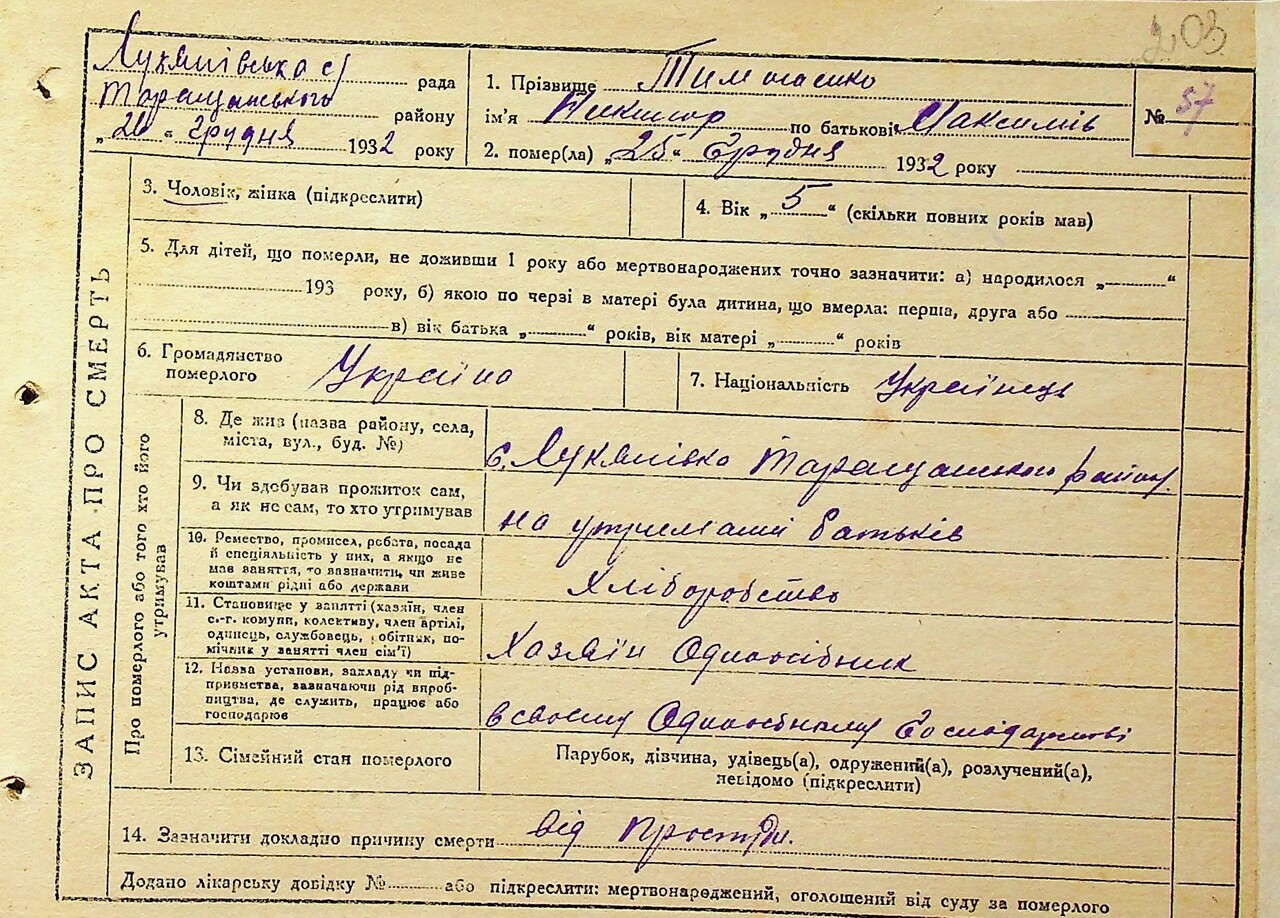 203
Лукянівська с/ рада
Таращанського району
„26“ Грудня 1932 року
1. Прізвище Тимошенко
ім'я Никипор по батькові Максимів
2. помер(ла) „25“ Грудня 1932 року
№ 57
3. Чоловік, жінка (підкреслити)
4. Вік „5“ (скільки повних років мав)
5. Для дітей, що померли, не доживши 1 року або мертвонароджених точно зазначити: а) народилося „ “
193 року, б) якою по черзі в матері була дитина, що вмерла: перша, друга або
в) вік батька „ “ років, вік матері „ “ років
6. Громадянство
померлого Україна
7. Національність Українець
ЗАПИС АКТА ПРО СМЕРТЬ
Про померлого або того хто його
утримував
8. Де жив (назва району, села,
міста, вул., буд. №)
с. Лукянівка Таращанського району
9. Чи здобував прожиток сам,
а як не сам, то хто утримував
на утриманні батьків
10. Ремество, промисел, робота, посада
й спеціяльність у них, а якщо не
мав заняття, то зазначити, чи живе
коштами рідні або держави
Хліборобство
11. Становище у занятті (хазяїн, член
с.-г. комуни, колективу, член артілі,
одинець, службовець, робітник, по-
мічник у занятті член сім'ї)
Хазяїн Одноосібник
12. Назва установи, закладу чи під-
приємства, зазначаючи рід вироб-
ництва, де служить, працює або
господарює
в своєму Одноосібному Господарстві
13. Сімейний стан померлого
Парубок, дівчина, удівець(а), одружений(а), розлучений(а),
невідомо (підкреслити)
14. Зазначити докладно причину смерти від простуди.
Додано лікарську довідку № або підкреслити: мертвонароджений, оголошений від суду за померлого